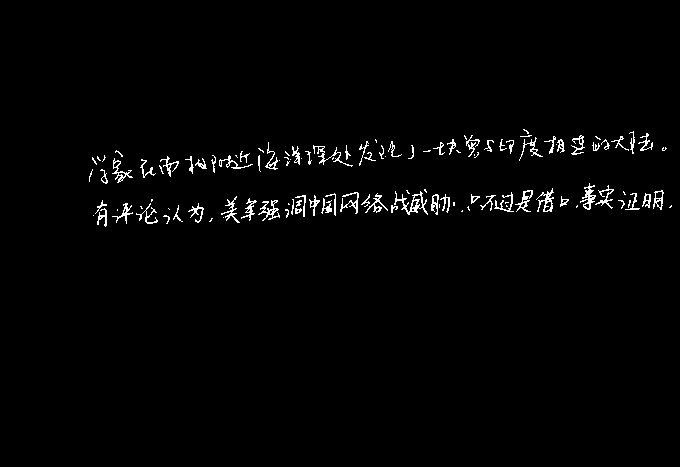 学家在南极附近海洋深处发现了一块曾与印度相连的大陆。
有评论认为,美军强调中国网络战威胁,只不过是借口,事实证明,